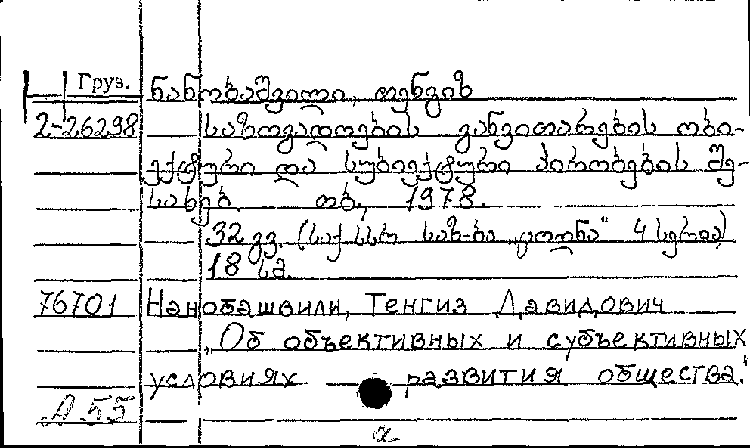 Груз. ნანობაშვილი, თენგიზ
2-26298 საზოგადოების განვითარების ობი-
ექტური და სუბიექტური პირობების შე-
სახებ. თბ., 1978.
32 გვ. (საქ. სსრ საზ-ბა „ცოდნა“ 4 სერია)
18 სმ.
76701 Нанобашвили, Тенгиз Давидович
„Об объективных и субъективных
условиях развития общества."
А 55